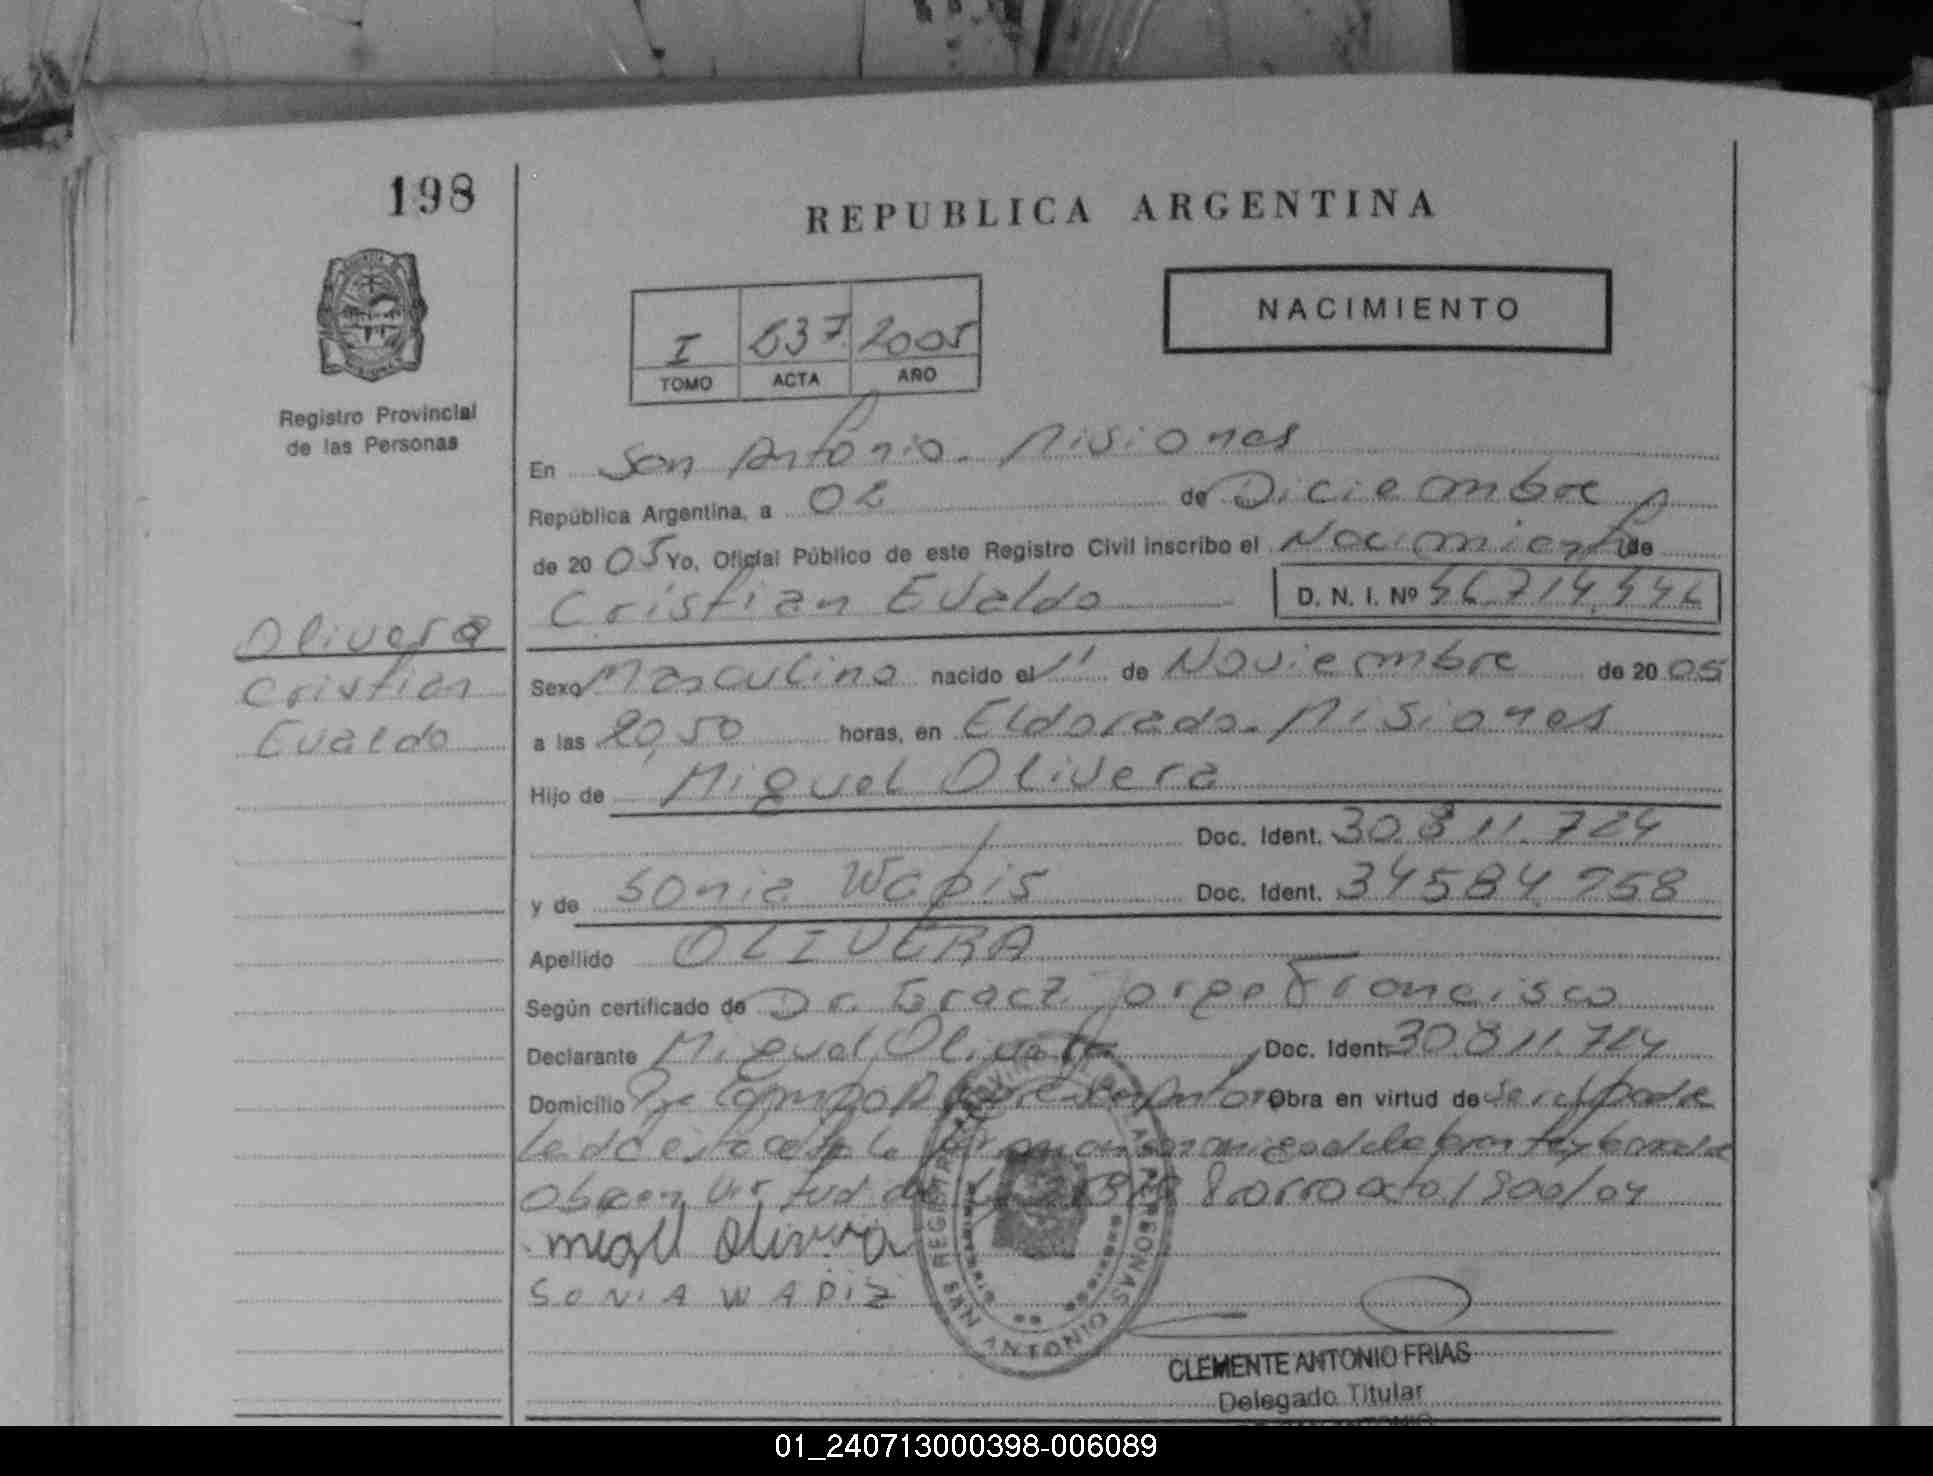 198
REPUBLICA ARGENTINA
NACIMIENTO
I 637 2005
TOMO ACTA AÑO
Registro Provincial
de las Personas
En San Antonio. Misiones
República Argentina, a 02 de Diciembre
de 2005 Yo, Oficial Público de este Registro Civil inscribo el Nacimiento de
Cristian Evaldo D. N. I. Nº
Olivera
Cristian
Evaldo
Sexo Masculino nacido el 11 de Noviembre de 2005
a las 20,50 horas, en Eldorado. Misiones
Hijo de Miguel Olivera
Doc. Ident. 30.811.724
y de Sonia Wapis Doc. Ident. 34584.758
Apellido OLIVERA
Según certificado de Dr. Jorge Francisco
Declarante Miguel Olivera Doc. Ident. 30.811.724
Domicilio San Antonio Obra en virtud de ser el padre
Obra en virtud de
Olivera
SONIA WAPIZ
REGISTRO PERSONAS
ANTONIO
CLEMENTE ANTONIO FRIAS
Delegado Titular
01_240713000398-006089